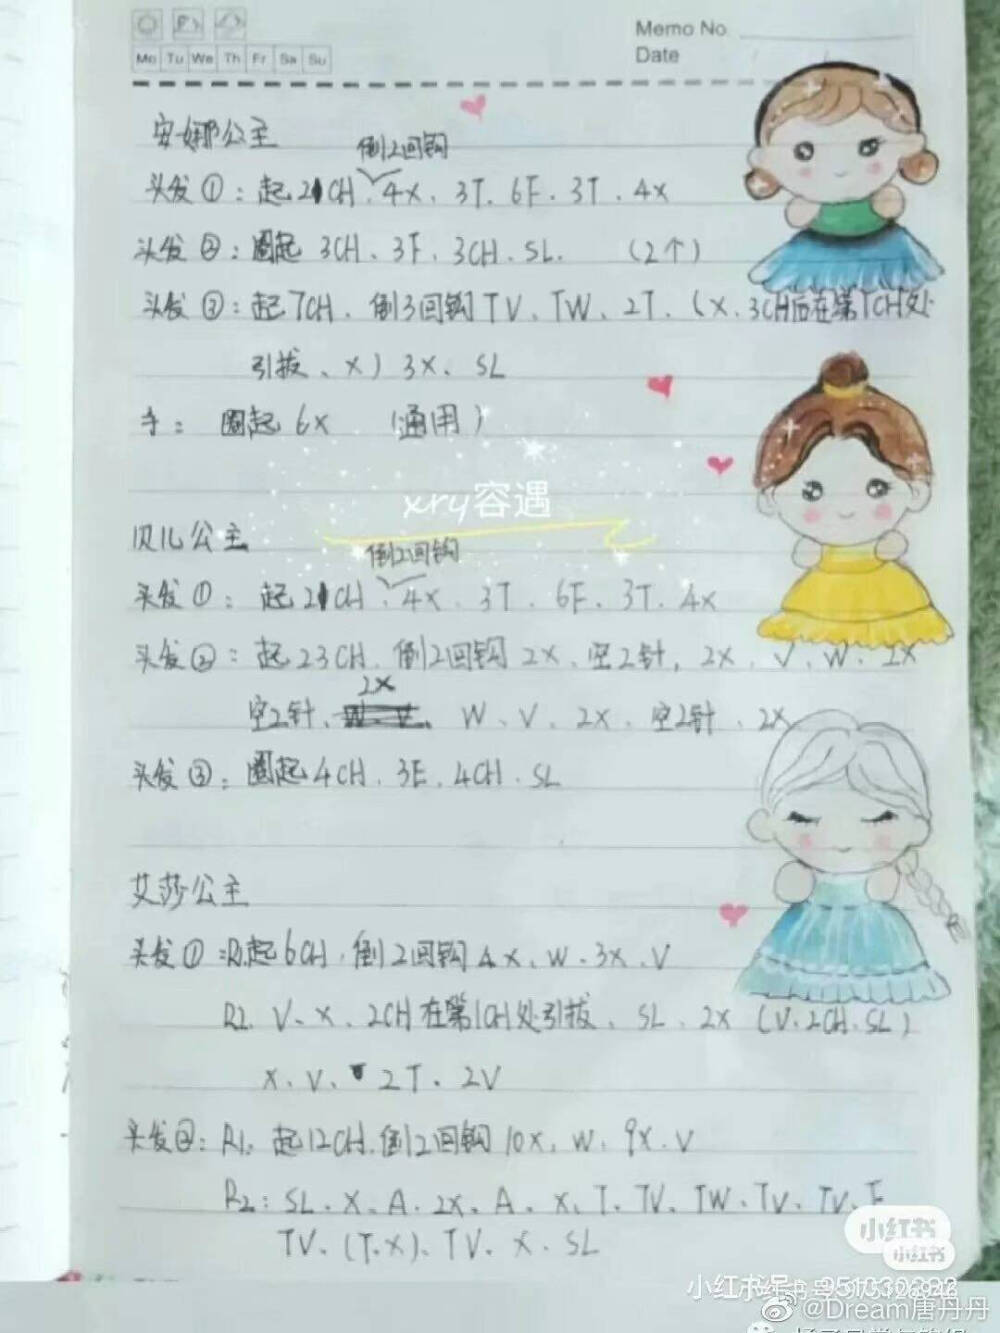 Memo No.
Date
Mo Tu We Th Fr Sa Su
安娜公主
倒2回钩
头发①：起21CH、4X、3T、6F、3T、4X
头发②：圈起 3CH、3F、3CH、SL. （2个）
头发③：起7CH、倒3回钩TV、TW、2T、(X、3CH后在第1CH处
引拔、X) 3X、SL
手： 圈起6X （通用）
xry容遇
贝儿公主
倒2回钩
头发①：起21CH、4X、3T、6F、3T、4X
头发②：起23CH、倒2回钩 2X、空2针、2X、V、W、2X
2X
空2针、 W、V、2X、空2针、2X
头发③：圈起4CH、3E、4CH、SL
艾莎公主
头发①：R1起6CH、倒2回钩4X、W、3X、V
R2. V、X、2CH在第1CH处引拔、SL、2X (V、2CH、SL)
X、V、2T、2V
头发②：R1、起12CH、倒2回钩10X、W、9X、V
R2：SL、X、A、2X、A、X、T、TV、TW、TV、TV、F
TV、(T、X)、TV、X、SL
小红书
小红书
小红书号:
@Dream唐丹丹